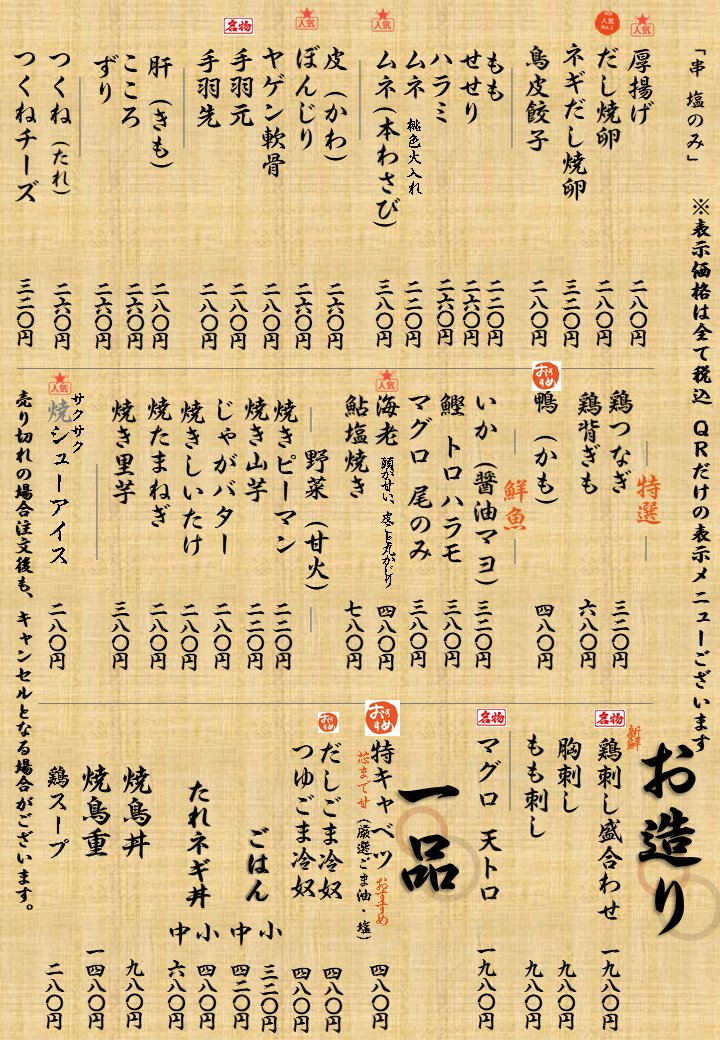 「串　塩のみ」
※表示価格は全て税込　QRだけの表示メニューございます
人気
厚揚げ　二八〇円
人気No.1
だし焼卵　二八〇円
ネギだし焼卵　三二〇円
鳥皮餃子　二八〇円
もも　二二〇円
せせり　二六〇円
ハラミ　二六〇円
ムネ　桃色火入れ　二二〇円
人気
ムネ（本わさび）　三八〇円
皮（かわ）　二六〇円
人気
ぼんじり　二六〇円
ヤゲン軟骨　二八〇円
名物
手羽元　二八〇円
手羽先　二八〇円
肝（きも）　二八〇円
こころ　二六〇円
ずり　二六〇円
つくね（たれ）　二六〇円
つくねチーズ　三二〇円
特選
鶏つなぎ　三二〇円
鶏背ぎも　六八〇円
おすすめ
鴨（かも）　四八〇円
鮮魚
いか（醤油マヨ）　三二〇円
鰹　トロハラモ　三八〇円
マグロ　尾のみ　三八〇円
人気
海老　頭が甘い、皮ごと丸かじり　四八〇円
鮎塩焼き　七八〇円
野菜（甘火）
焼きピーマン　二二〇円
焼き山芋　二二〇円
じゃがバター　二八〇円
焼きしいたけ　二八〇円
焼たまねぎ　二八〇円
焼き里芋　三八〇円
人気
サクサク
焼シューアイス　二八〇円
売り切れの場合注文後も、キャンセルとなる場合がございます。
お造り
新鮮
名物
鶏刺し盛合わせ　一九八〇円
胸刺し　九八〇円
もも刺し　九八〇円
名物
マグロ　天トロ　一九八〇円
一品
おすすめ
特キャベツ　おすすめ　四八〇円
芯まで甘　（厳選ごま油・塩）
だしごま冷奴　四八〇円
おすすめ
つゆごま冷奴　四八〇円
ごはん　小　三二〇円
中　四二〇円
たれネギ丼　小　四八〇円
中　六八〇円
焼鳥丼　九八〇円
焼鳥重　一四八〇円
鶏スープ　二八〇円